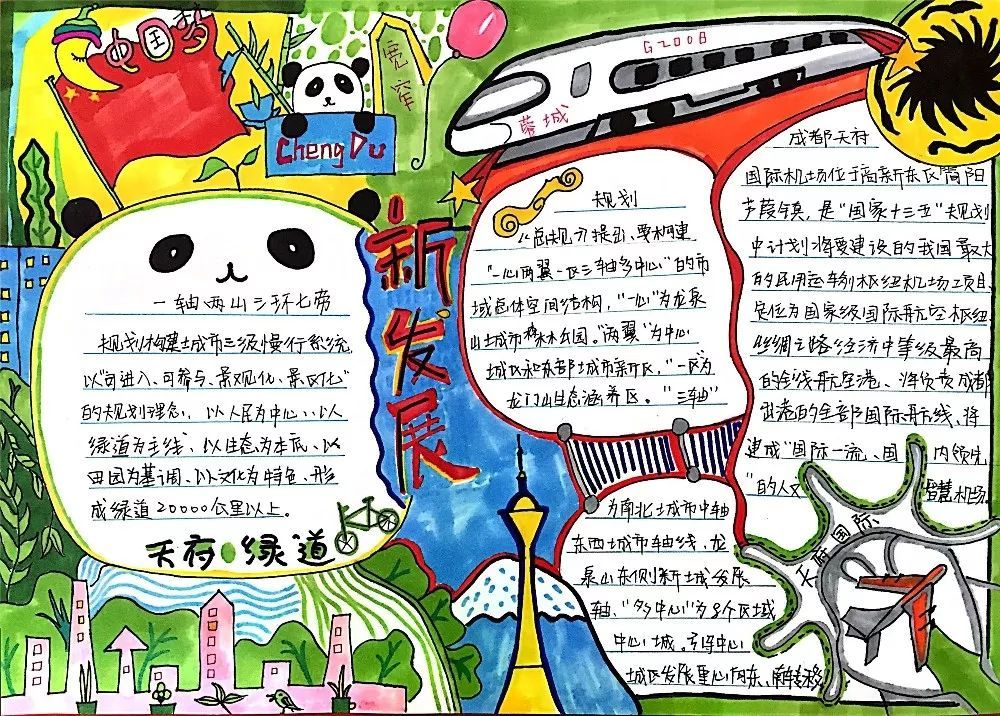 中国梦
ChengDu
宽窄
G2008
蓉城
新发展
一轴两山三环七带
规划构建城市三级慢行系统
以"可进入、可参与、景观化、景区化"
的规划理念，以人民为中心、以
绿道为主线、以生态为本底、以
田园为基调、以文化为特色、形
成绿道20000公里以上。
天府绿道
规划
《总规》提出、要构建
"一心两翼一区三轴多中心"的市
域总体空间结构，"一心"为龙泉
山城市森林公园。"两翼"为中心
城区和东部城市新区，"一区"为
龙门山生态涵养区。"三轴"
为南北城市中轴
东西城市轴线、龙
泉山东侧新城发展
轴、"多中心"为8个区域
中心城。引导中心
城区发展重心向东、南转移
成都天府
国际机场位于高新东区简阳
芦葭镇，是"国家十三五"规划
中计划将要建设的我国最大
的民用运输枢纽机场工项目、
定位为国家级国际航空枢纽
丝绸之路经济中等级最高
的全线航空港、将负责成都
出港的全部国际航线、将
建成"国际一流、国内领先
"的人文 智慧机场。
天府国际